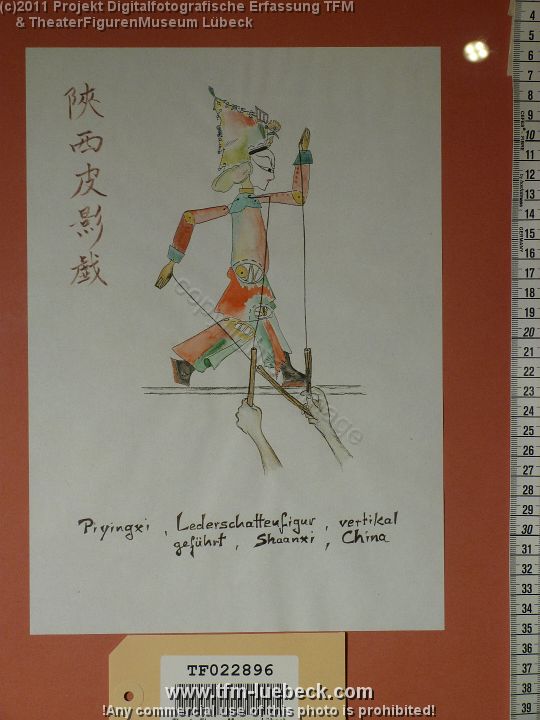 (c)2011 Projekt Digitalfotografische Erfassung TFM
& TheaterFigurenMuseum Lübeck
陝西皮影戯
Piyingxi, Lederschattenfigur, vertikal
geführt, Shaanxi, China
TF022896
www.tfm-luebeck.com
!Any commercial use of this photo is prohibited!
4
5
6
7
8
9
10
11
12
13
14
15
16
17
18
19
20
21
22
23
24
25
26
27
28
29
30
31
32
33
34
35
36
37
38
39